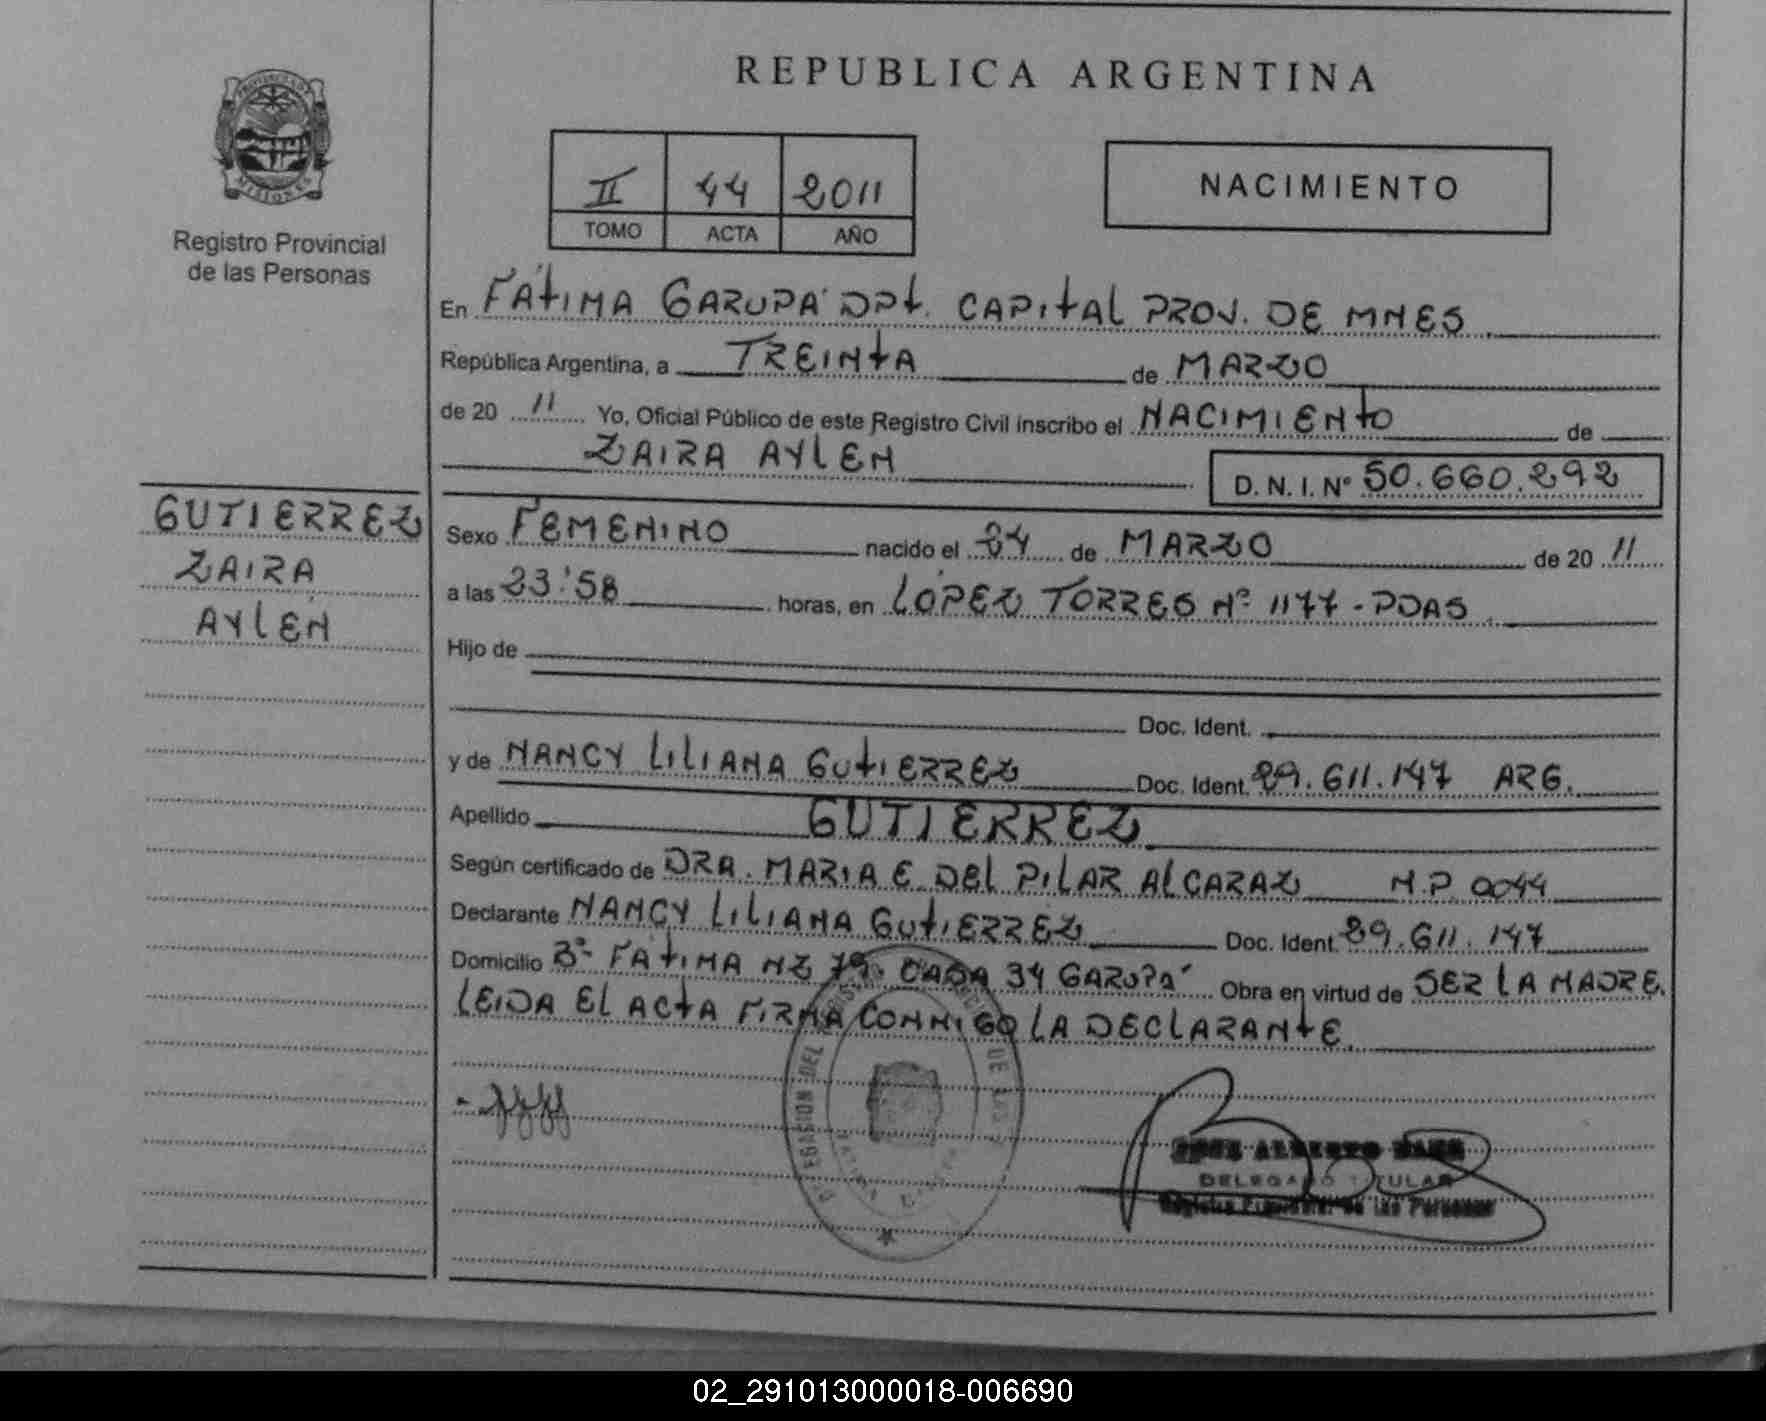 REPUBLICA ARGENTINA
PROVINCIA DE MISIONES
Registro Provincial
de las Personas
II 44 2011
TOMO ACTA AÑO
NACIMIENTO
En FÁTIMA GARUPÁ DPt. CAPItAL PROV. DE MNES.
República Argentina, a TREINTA de MARZO
de 20 11 Yo, Oficial Público de este Registro Civil inscribo el NACIMIENTO de
ZAIRA AYLEN D. N. I. Nº 50.660.292
GUTIERREZ
ZAIRA
AYLÉN
Sexo FEMENINO nacido el 24 de MARZO de 20 11
a las 23:58 horas, en LÓPEZ TORRES Nº 1177 - PDAS.
Hijo de
Doc. Ident.
y de NANCY LILIANA GUTIERREZ Doc. Ident. 29.611.147 ARG.
Apellido GUTIERREZ
Según certificado de DRA. MARIA E. DEL PILAR ALCARAZ M.P. 0044
Declarante NANCY LILIANA GUTIERREZ Doc. Ident. 29.611.147
Domicilio Bº FÁTIMA MZ 79. CASA 34 GARUPÁ Obra en virtud de SER LA MADRE.
LEIDA EL ACTA FIRMA CONMIGO LA DECLARANTE.
JOSE ALBERTO
DELEGADO TITULAR
Registro Provincial de las Personas
02_291013000018-006690